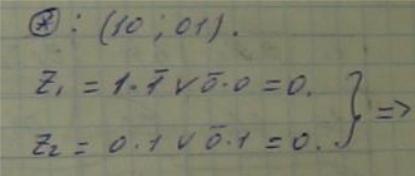 Ⓧ: (10; 01).
Z₁ = 1·1̄ ∨ 0̄·0 = 0.
Z₂ = 0·1 ∨ 0̄·1 = 0. } =>